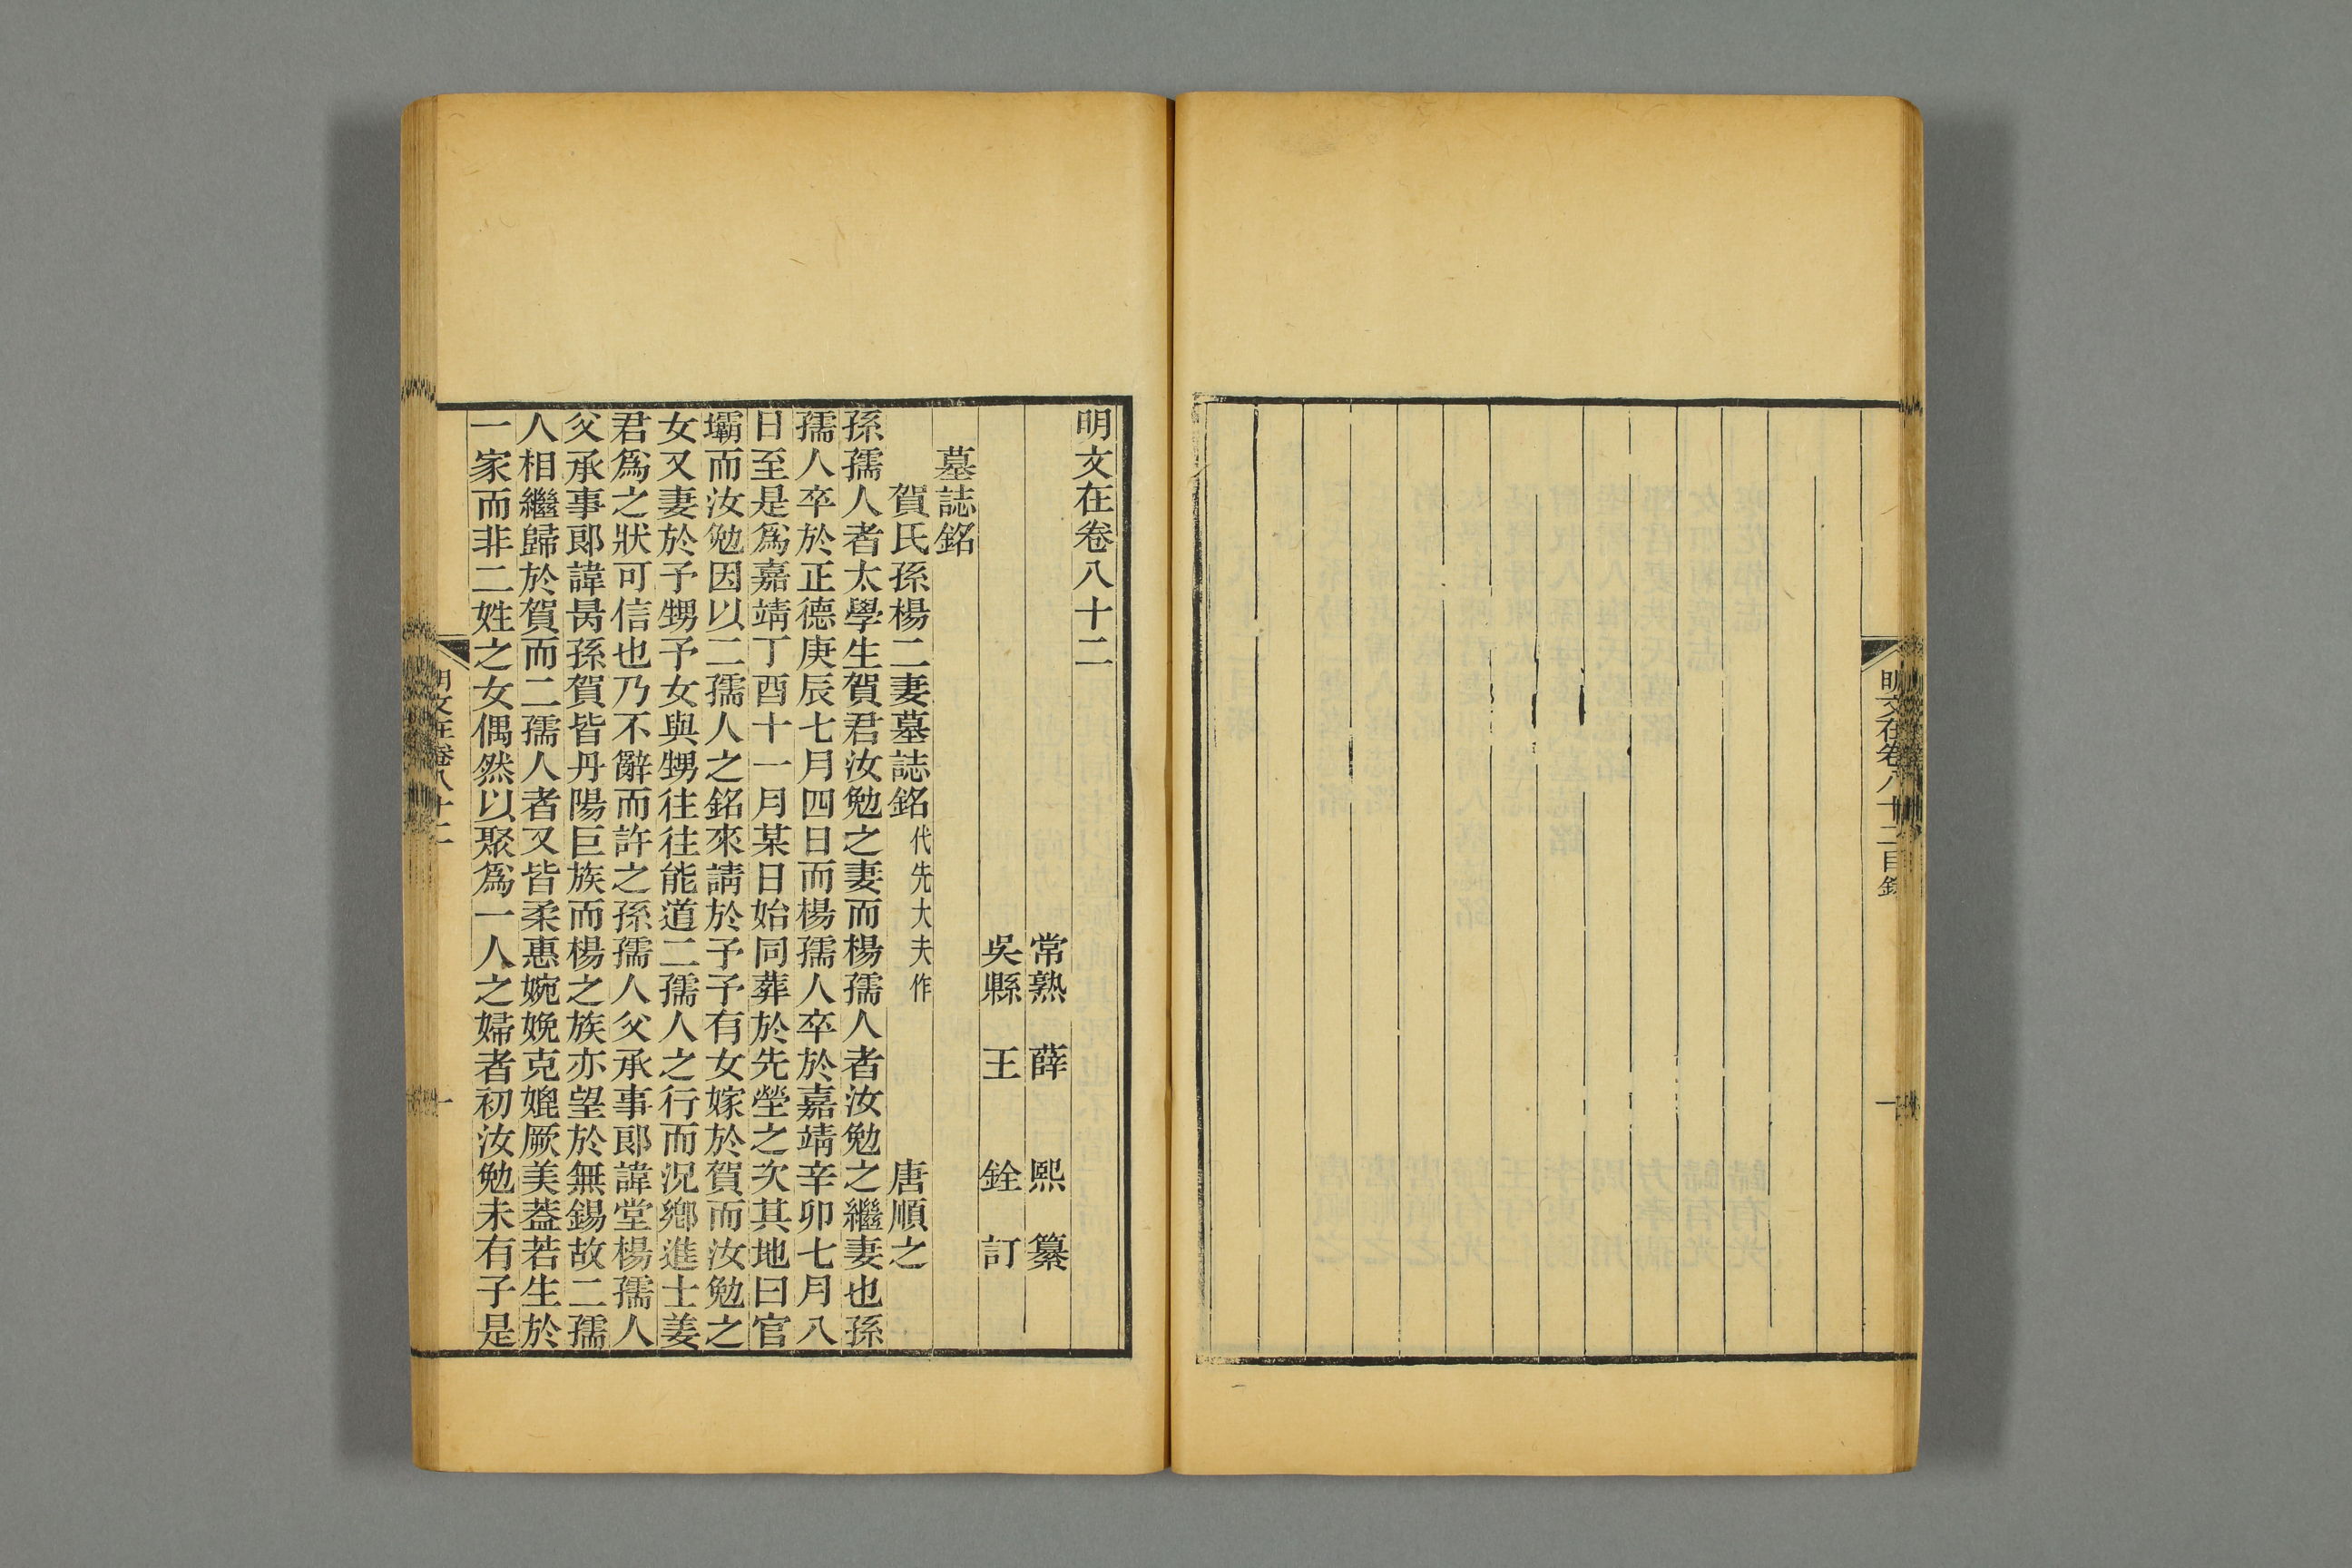 明文在卷八十二目錄
一
明文在卷八十二
常熟 薛 熙 纂
吳縣 王 銓 訂
墓誌銘
賀氏孫楊二妻墓誌銘代先大夫作 唐順之
孫孺人者太學生賀君汝勉之妻而楊孺人者汝勉之繼妻也孫
孺人卒於正德庚辰七月四日而楊孺人卒於嘉靖辛卯七月八
日至是爲嘉靖丁酉十一月某日始同葬於先塋之次其地曰官
壩而汝勉因以二孺人之銘來請於予予有女嫁於賀而汝勉之
女又妻於予甥予女與甥往往能道二孺人之行而況鄉進士姜
君爲之狀可信也乃不辭而許之孫孺人父承事郎諱堂楊孺人
父承事郎諱昺孫賀皆丹陽巨族而楊之族亦望於無錫故二孺
人相繼歸於賀而二孺人者又皆柔惠婉娩克媲厥美葢若生於
一家而非二姓之女偶然以聚爲一人之婦者初汝勉未有子是
明文在卷八十二
一